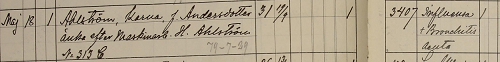 Maj 18 1 Ahlström, Karna, f. Andersdotter 31 12/9 1 3407 Influensa
änka efter Markmann. H. Ahlström + Bronchitis
N. 313 C 79-7-29 acuta